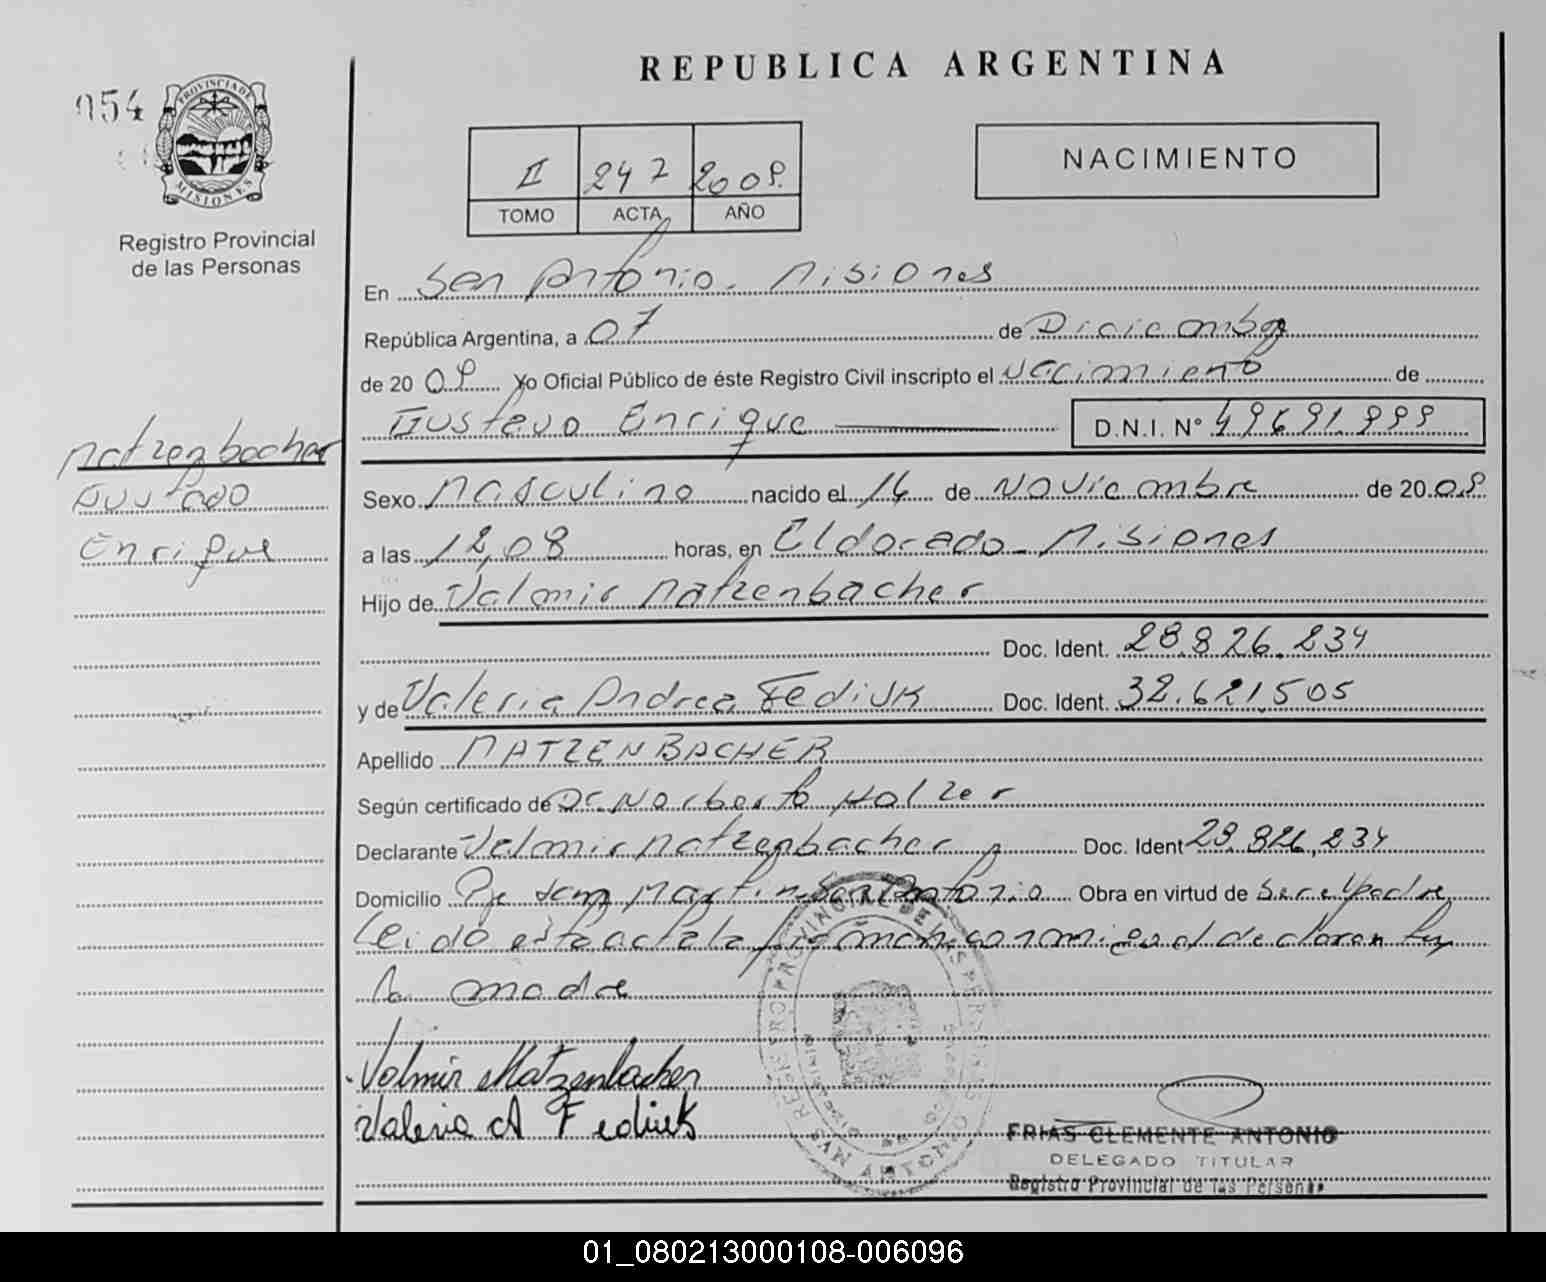 REPUBLICA ARGENTINA
054
PROVINCIA DE
MISIONES
Registro Provincial
de las Personas
II 247 2009.
TOMO ACTA AÑO
NACIMIENTO
En San Antonio - Misiones
República Argentina, a 07 de Diciembre
de 20 09 Yo Oficial Público de éste Registro Civil inscripto el Nacimiento de
Gustavo Enrique D.N.I. N° 49691.999
Matzenbacher
Gustavo
Enrique
Sexo Masculino nacido el 16 de Noviembre de 20 09
a las 12,08 horas, en Eldorado - Misiones
Hijo de Valmir Matzenbacher
Doc. Ident. 28.826.234
y de Valeria Andrea Fediuk Doc. Ident. 32.621.505
Apellido MATZENBACHER
Según certificado de Dr. Norberto Holzer
Declarante Valmir Matzenbacher Doc. Ident 28.826.234
Domicilio San Martin San Antonio Obra en virtud de ser el padre
Leido esta acta la firman conmigo el declarante y
la madre
Valmir Matzenbacher
Valeria A Fediuk
REGISTRO PROVINCIAL DE LAS PERSONAS
SAN ANTONIO
FRIAS CLEMENTE ANTONIO
DELEGADO TITULAR
Registro Provincial de las Personas
01_080213000108-006096